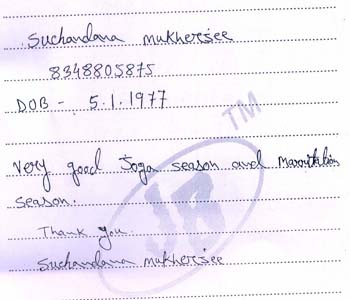 Suchandana mukherjee
8348805875
DOB - 5.1.1977
TM
Very good Joga season and
season.
JR
Thank you.
Suchandana mukherjee